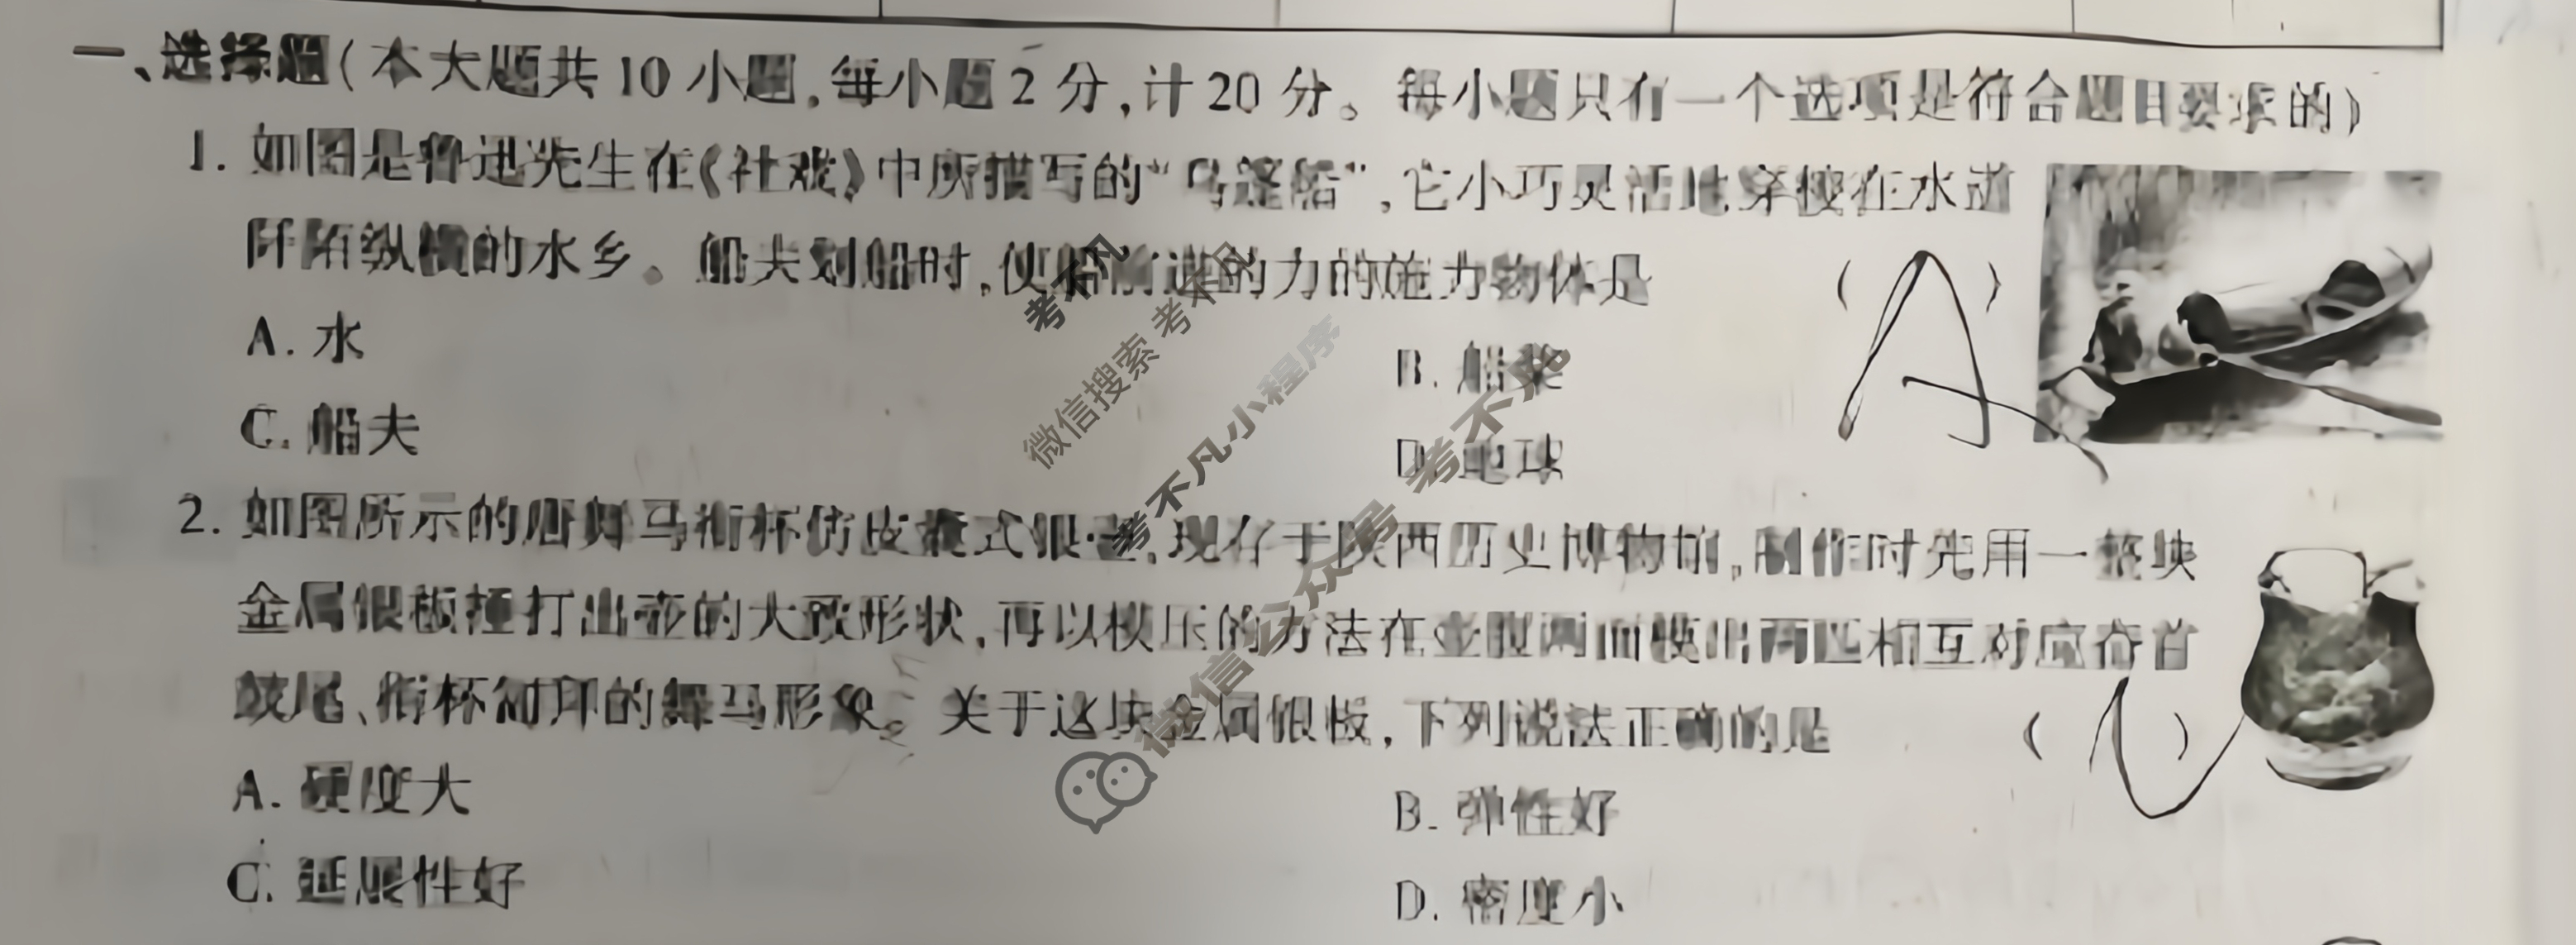 一、选择题(本大题共10小题,每小题2分,计20分。每小题只有一个选项是符合题目要求的)
1. 如图是鲁迅先生在《社戏》中所描写的“乌篷船”,它小巧灵活地穿梭在水道
阡陌纵横的水乡。船夫划船时,使船前进的力的施力物体是
(A)
A. 水
B. 船桨
C. 船夫
D. 地球
2. 如图所示的唐舞马衔杯仿皮囊式银壶,现存于陕西历史博物馆,制作时先用一整块
金属银板捶打出壶的大致形状,再以模压的方法在壶腹两面模出两匹相互对应奋首
鼓尾、衔杯匐拜的舞马形象。关于这块金属银板,下列说法正确的是
(C)
A. 硬度大
B. 弹性好
C. 延展性好
D. 密度小
考不凡
微信搜索 考不凡
考不凡小程序
微信公众号 考不凡